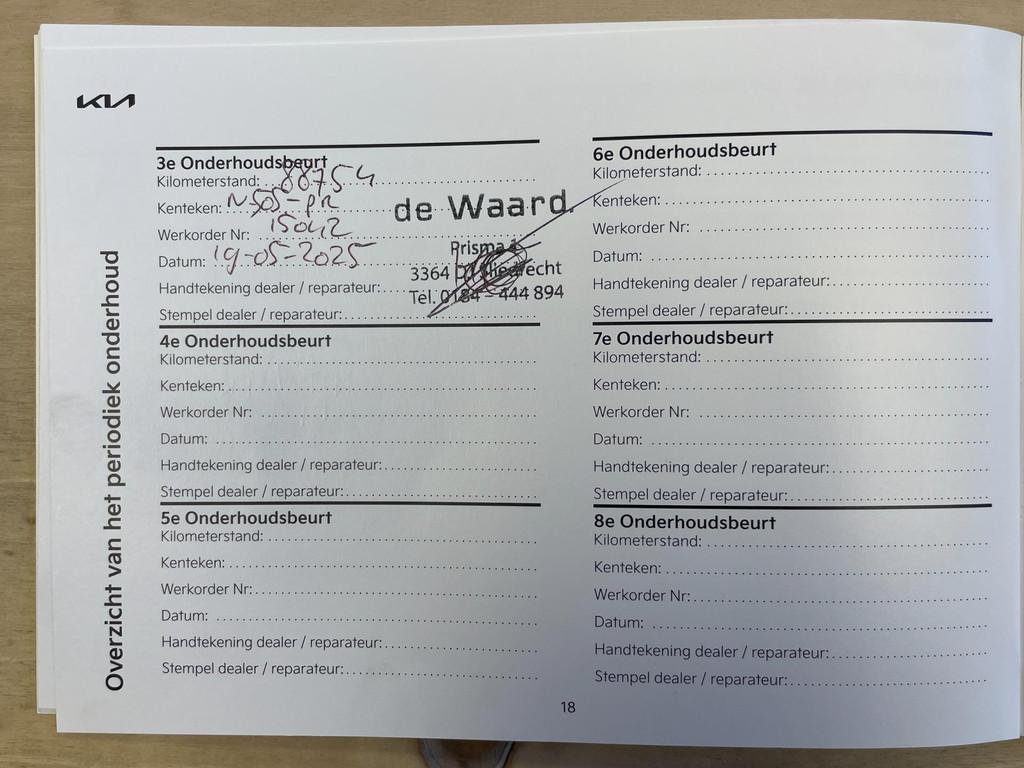 KIA
Overzicht van het periodiek onderhoud
3e Onderhoudsbeurt
Kilometerstand: 88754
Kenteken: N505-PR
Werkorder Nr: 15042
Datum: 19-05-2025
Handtekening dealer / reparateur:
Stempel dealer / reparateur:
de Waard
Prisma 1
3364 DJ Sliedrecht
Tel. 0184 - 444 894
4e Onderhoudsbeurt
Kilometerstand:
Kenteken:
Werkorder Nr:
Datum:
Handtekening dealer / reparateur:
Stempel dealer / reparateur:
5e Onderhoudsbeurt
Kilometerstand:
Kenteken:
Werkorder Nr:
Datum:
Handtekening dealer / reparateur:
Stempel dealer / reparateur:
6e Onderhoudsbeurt
Kilometerstand:
Kenteken:
Werkorder Nr:
Datum:
Handtekening dealer / reparateur:
Stempel dealer / reparateur:
7e Onderhoudsbeurt
Kilometerstand:
Kenteken:
Werkorder Nr:
Datum:
Handtekening dealer / reparateur:
Stempel dealer / reparateur:
8e Onderhoudsbeurt
Kilometerstand:
Kenteken:
Werkorder Nr:
Datum:
Handtekening dealer / reparateur:
Stempel dealer / reparateur:
18